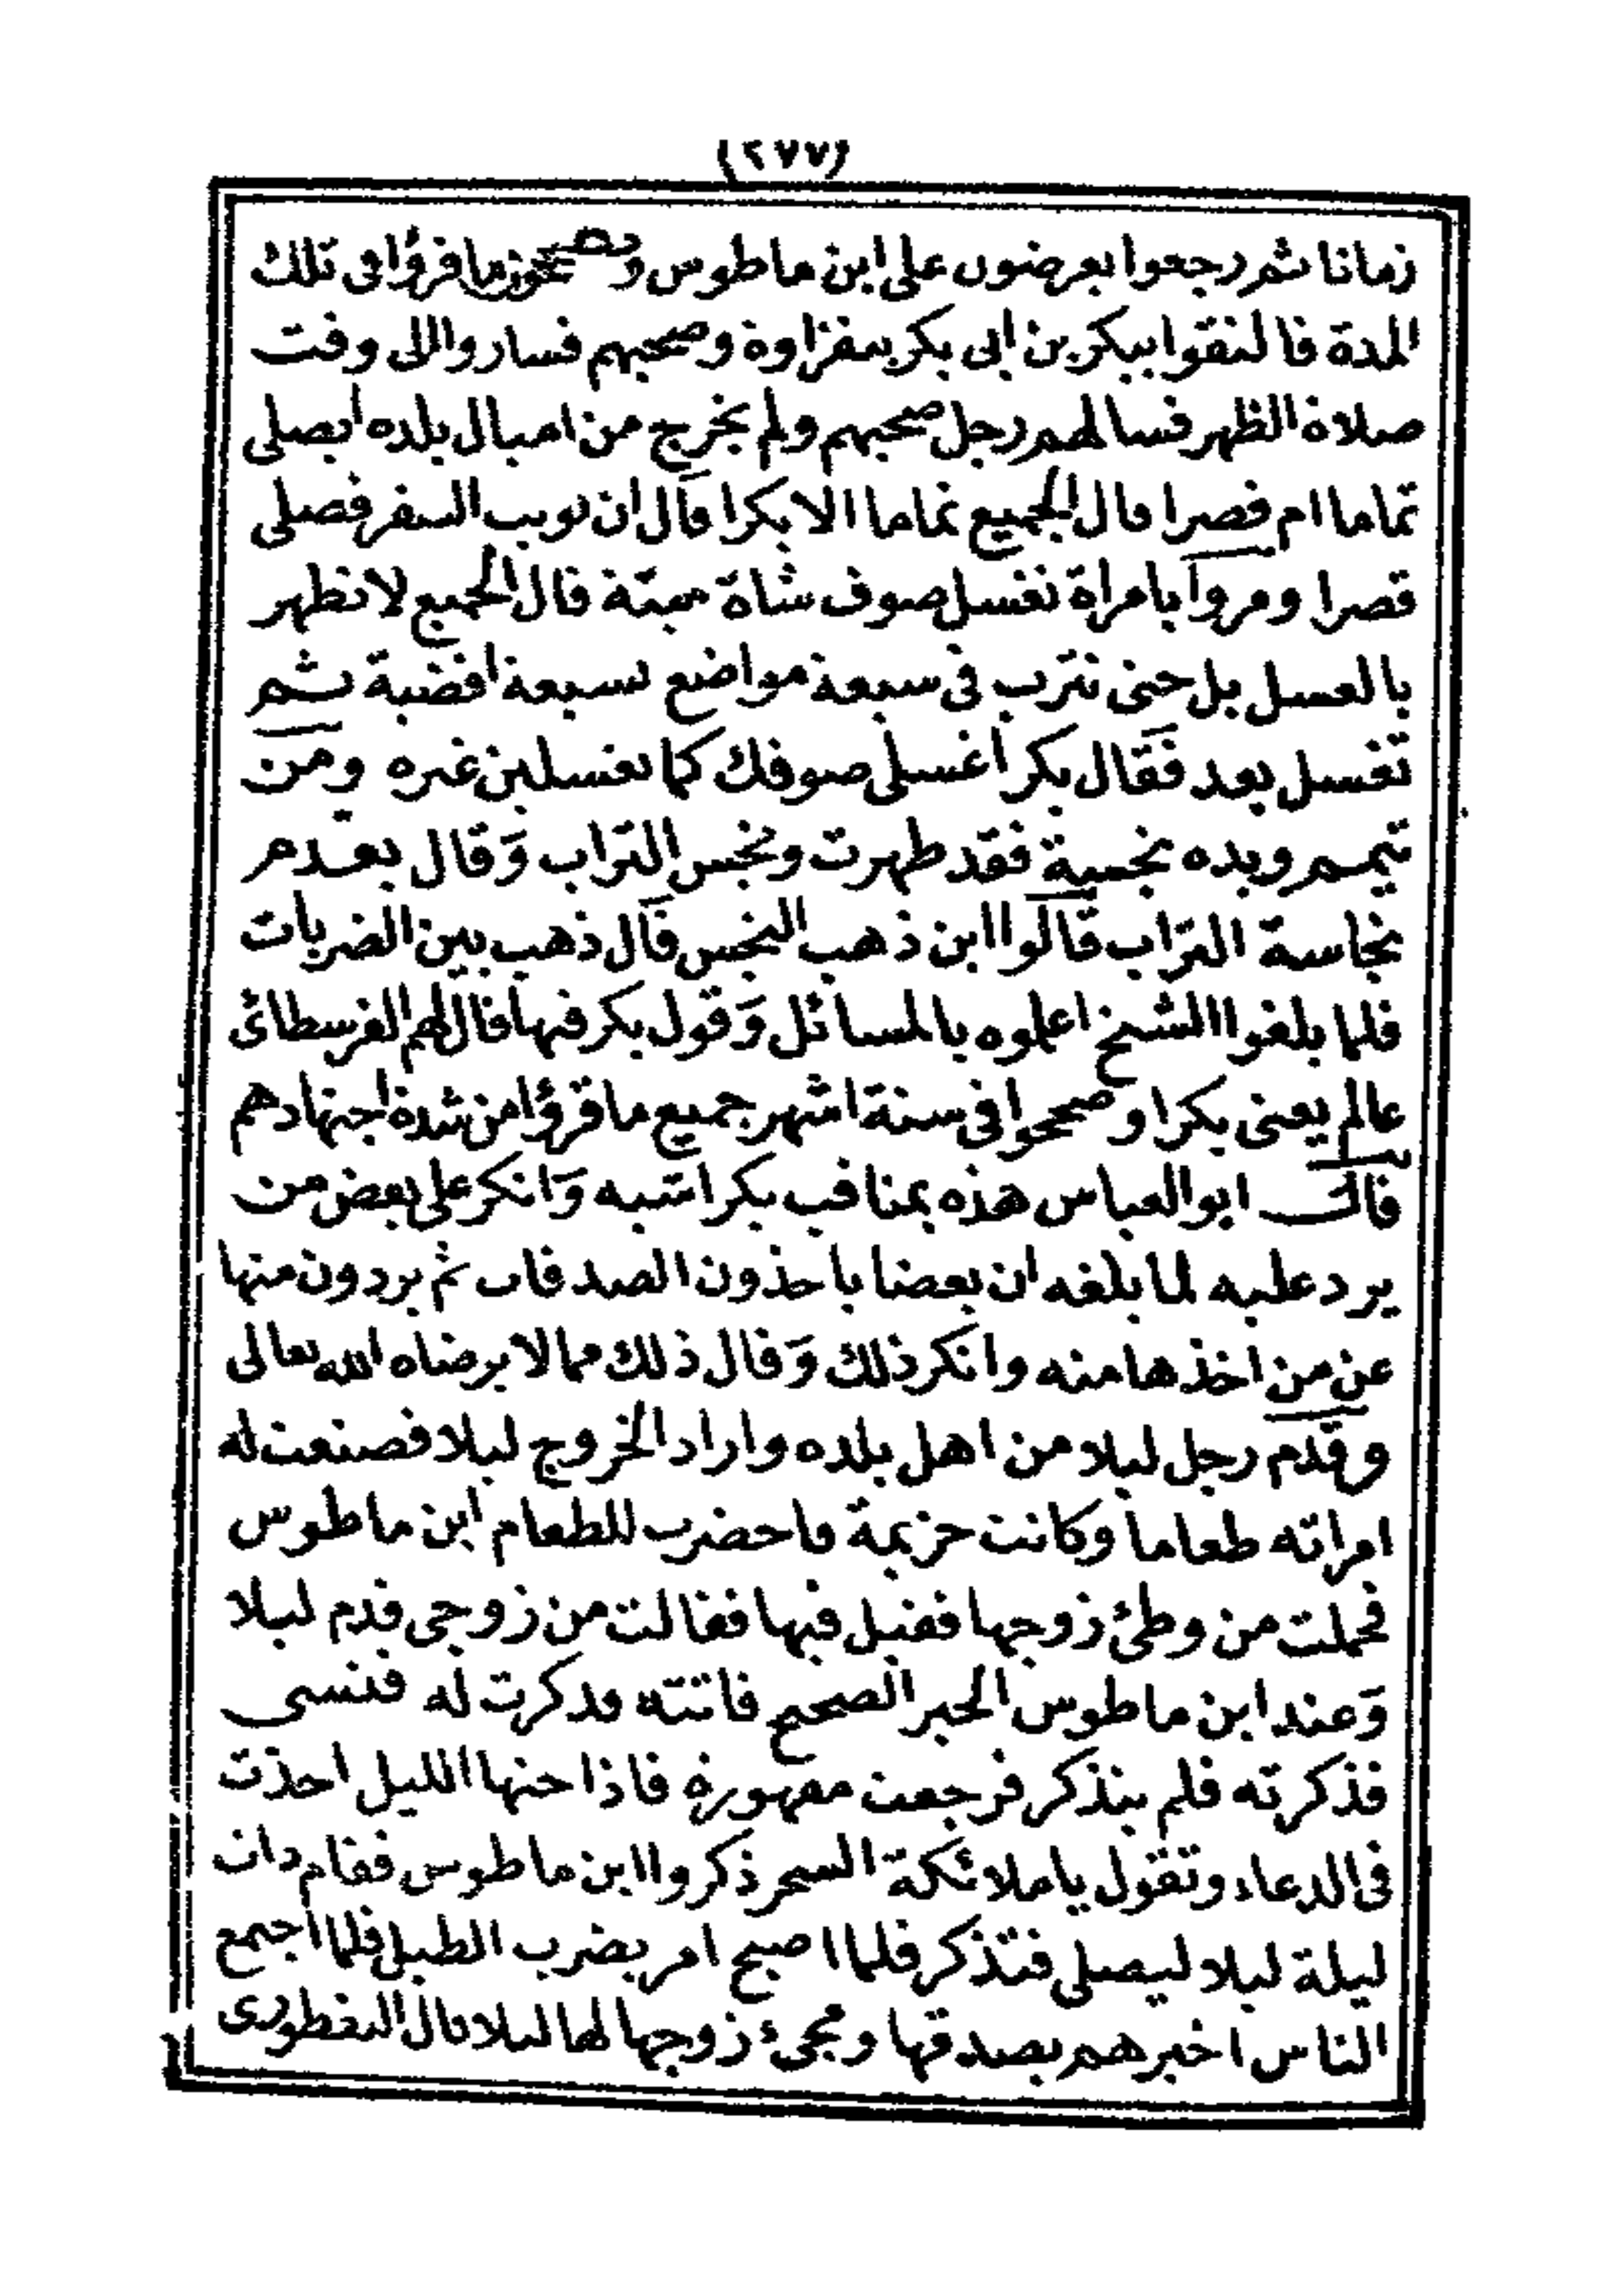 (٢٧٧)
زمانا ثم رجعوا يعرضون على ابن ماطوس ويصححون ما قرؤا فى تلك
المدة فالتقوا ببكر بن ابى بكر بنفزاوة وصحبهم فساروا الى وقت
صلاة الظهر فسالهم رجل صحبهم ولم يخرج من اميال بلده ايصلى
تماما ام قصرا قال الجميع تماما الا بكرا قال ان نويت السفر فصلى
قصرا ومروا بامراة تغسل صوف شاة ميتة قال الجميع لا تطهر
بالغسل بل حتى تترب فى سبعة مواضع لسبعة اقضبة ثم
تغسل بعد فقال بكر اغسلى صوفك كما تغسلين غيره ومن
تيمم وبيده نجسية فقد طهرت ونجس التراب وقال بعدم
نجاسة التراب قالوا اين ذهب النجس قال ذهب بين الضربات
فلما بلغوا الشيخ اعلموه بالمسائل وقول بكر فيها فقال لهم الفرسطائى
عالم يعنى بكرا وصححوا فى ستة اشهر جميع ما قرؤا من شدة اجتهادهم
قال ابو العباس هذه بمناقب بكر اشبه وانكر على بعض من
يرد عليه لما بلغه ان بعضا ياخذون الصدقات ثم يردون منها
عن من اخذها منه وانكر ذلك وقال ذلك مما لا يرضاه الله تعالى
وقدم رجل ليلا من اهل بلده واراد الخروج ليلا فصنعت له
امراته طعاما وكانت حزيمة فاحضرت للطعام ابن ماطوس
فحملت من وطئ زوجها فقيل فيها فقالت من زوجى قدم ليلا
وعند ابن ماطوس الخبر الصحيح فاتته فذكرت له فنسى
فذكرته فلم يتذكر فرجعت مقهورة فاذا جنها الليل اخذت
فى الدعاء وتقول يا ملائكة السحر ذكروا ابن ماطوس فقام ذات
ليلة ليلا ليصلى فتذكر فلما اصبح امر بضرب الطبل فلما اجتمع
الناس اخبرهم بصدقها ومجئ زوجها لها ليلا قال البغطورى